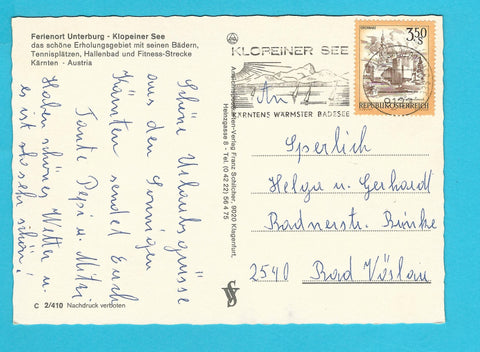 Ferienort Unterburg - Klopeiner See
das schöne Erholungsgebiet mit seinen Bädern,
Tennisplätzen, Hallenbad und Fitness-Strecke
Kärnten - Austria
Schöne Urlaubsgrüsse
aus den Sonnigen
Kärnten sendet Euch
Tante Pepi u. Mitzi
Haben schönes Wetter u.
es ist so sehr schön!
C 2/410 Nachdruck verboten
Ansichtskarten-Verlag Franz Schilcher, 9020 Klagenfurt,
Heinzgasse 8 - Tel. (0 42 22) 56 4 75
KLOPEINER SEE
KÄRNTENS WÄRMSTER BADESEE
3.50
S
REPUBLIK ÖSTERREICH
An
Sperlich
Helga u. Gerhard
Badnerstr.
2540 Bad Vöslau